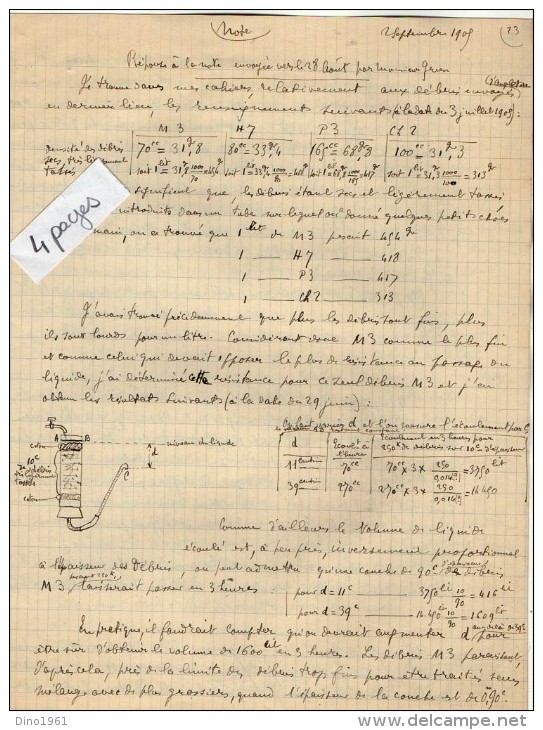 Note
2 Septembre 1905
23
Réponse à la note envoyée vers le 28 Août par monsieur
Je trouve dans mes cahiers relativement aux débris envoyés
en dernier lieu, les renseignements suivants (à la date du 3 juillet 1905) :
M3 H7 P3 Ch2
densité des débris
secs, très légèrement
tassés
70cc = 31,8gr 80cc = 33,4gr 165cc = 68,8gr 100cc = 31,3gr
soit 1 lit = 31,8 1000/70 = 454gr soit 1 lit = 33,4 1000/80 = 418gr soit 1 lit = 68,8 1000/165 = 417gr soit 1 lit = 31,3 1000/100 = 313gr
signifient que, les débris étant secs et légèrement tassés
introduits dans un tube sur lequel on donne quelques petits chocs
main, on a trouvé que 1 lit de M3 pesait 454gr
1 — H7 — 418
1 — P3 — 417
1 — Ch2 — 313
4 pages
J'avais trouvé précédemment que plus les débris sont fins, plus
ils sont lourds pour un litre. Considérant donc M3 comme le plus fin
et comme celui qui devait opposer le plus de résistance au passage du
liquide, j'ai déterminé cette résistance pour ce seul débris M3 et j'en
obtenu les résultats suivants (à la date du 29 juin) :
On fait varier d, et l'on mesure l'écoulement par C
A B
niveau du liquide
coton
10c
de débris
légèrement
tassés
coton
d
C
d
Écoulé à
l'heure
Écoulement en 3 heures pour
11 centim 70cc 70cc × 3 × 250/0,014 = 3750 lit
39 centim 270cc 270cc × 3 × 250/0,014 = 14490
Comme d'ailleurs le volume de liquide
écoulé est, à peu près, inversement proportionnel
à l'épaisseur des débris, on peut admettre qu'une couche de 90c de débris
M3, laisserait passer en 3 heures :
pour d = 11c — 3750 lit 10/90 = 416 lit
pour d = 39c — 14490 lit 10/90 = 1609 lit
En pratique, il faudrait compter qu'on devrait augmenter d, pour
être sûr d'obtenir le volume de 1600 lit en 3 heures. Les débris M3 paraissent
d'après cela, près de la limite des débris trop fins pour être traités seuls
mélange avec de plus grossiers, quand l'épaisseur de la couche est de 0m,90c.
Dino1961
delcampe.net